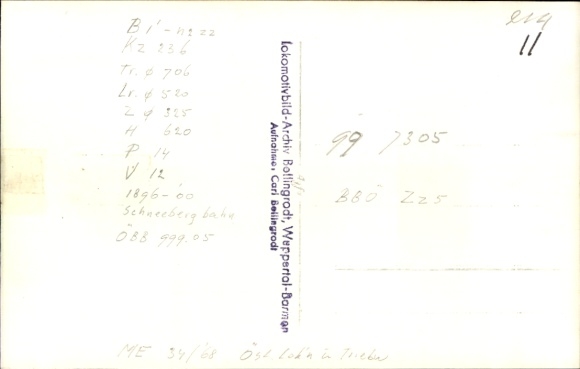 B1-n2 zz
Kz 236
Tr. ϕ 706
Lr. ϕ 520
Z ϕ 325
H 620
P 14
V 12
1896-'00
Schneebergbahn
ÖBB 999.05
Lokomotivbild-Archiv Bellingrodt, Wuppertal-Barmen
Aufnahme: Carl Bellingrodt
11
99 7305
BBÖ Z 25
ME 34/'68 Öst. Lok'n u. Triebw